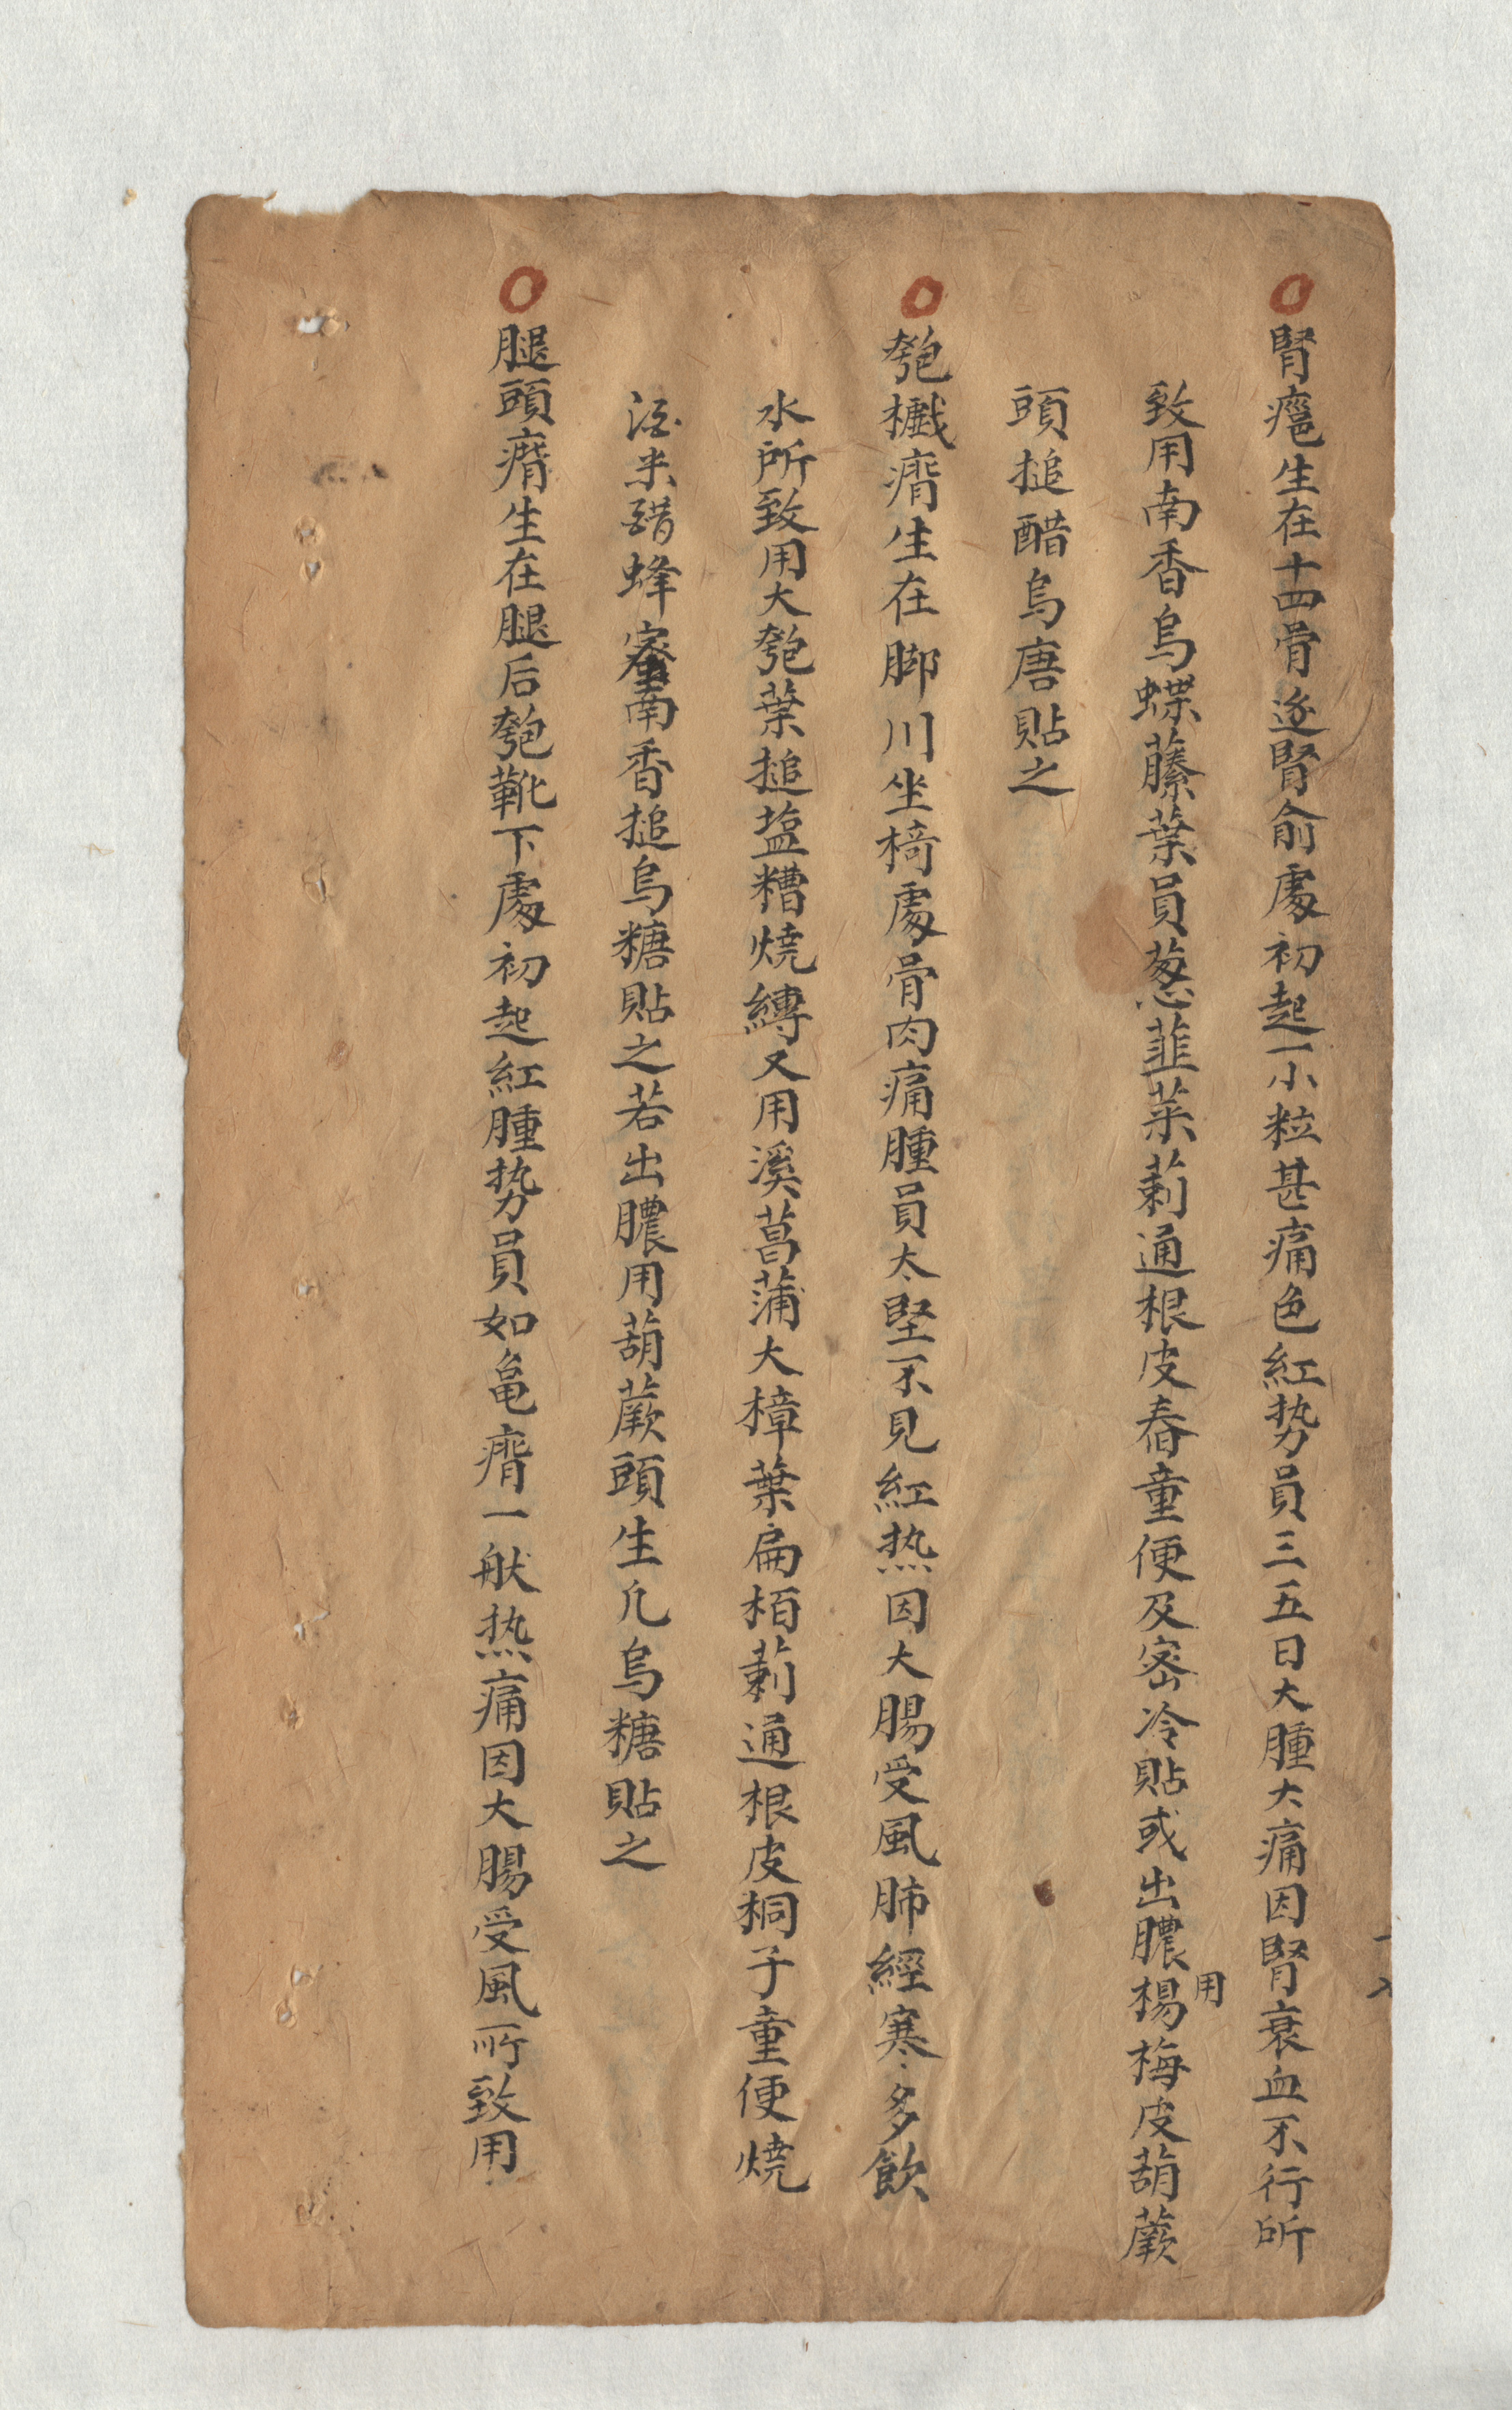 〇腎癍生在十四骨邊腎俞處初起一小粒甚痛色紅势員三五日大腫大痛因腎衰血不行所
致用南香烏蝶藤葉員葱韮菜莿通根皮舂童便及密冷貼或出膿用楊梅皮葫蕨
頭搥醋烏唐貼之
〇匏櫼瘠生在脚川坐椅處骨肉痛腫員太堅不見紅热因大腸受風肺經寒多飲
水所致用大匏葉搥塩糟燒縛又用溪菖蒲大樟葉扁栢莿通根皮桐子童便燒
米醋蜂蜜南香搥烏糖貼之若出膿用葫蕨頭生凢烏糖貼之
〇腿頭瘠生在腿后匏靴下處初起紅腫势員如亀瘠一般热痛因大腸受風所致用